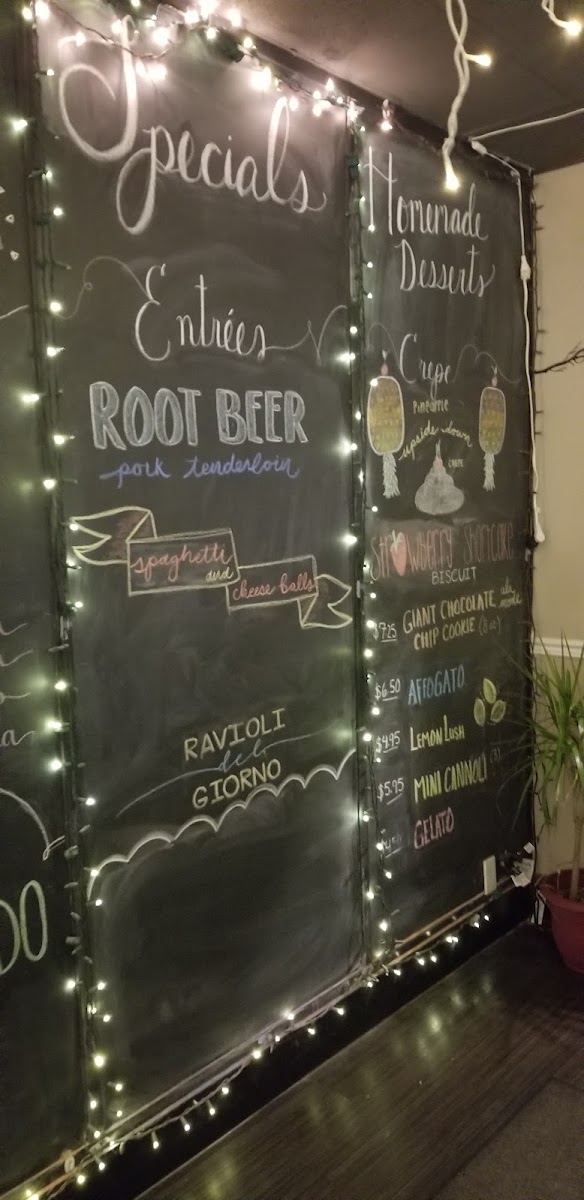 Specials
Entrées
ROOT BEER
pork tenderloin
spaghetti and
cheese balls
RAVIOLI
del
GIORNO
Homemade
Desserts
Crepe
Pineapple
upside down
Strawberry Shortcake
BISCUIT
$7.25 GIANT CHOCOLATE ala mode
CHIP COOKIE (8 oz)
$6.50 AFFOGATO
$4.95 LEMON LUSH
$5.95 MINI CANNOLI (3)
GELATO